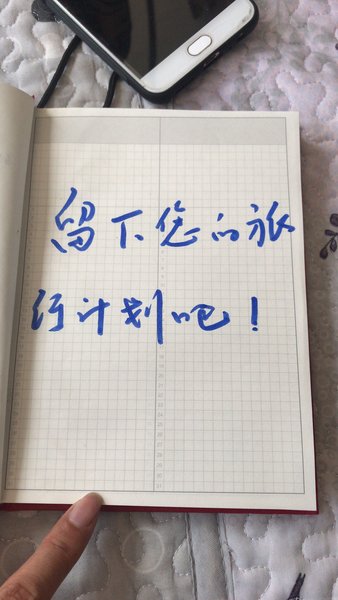 留下您的旅
行计划吧！